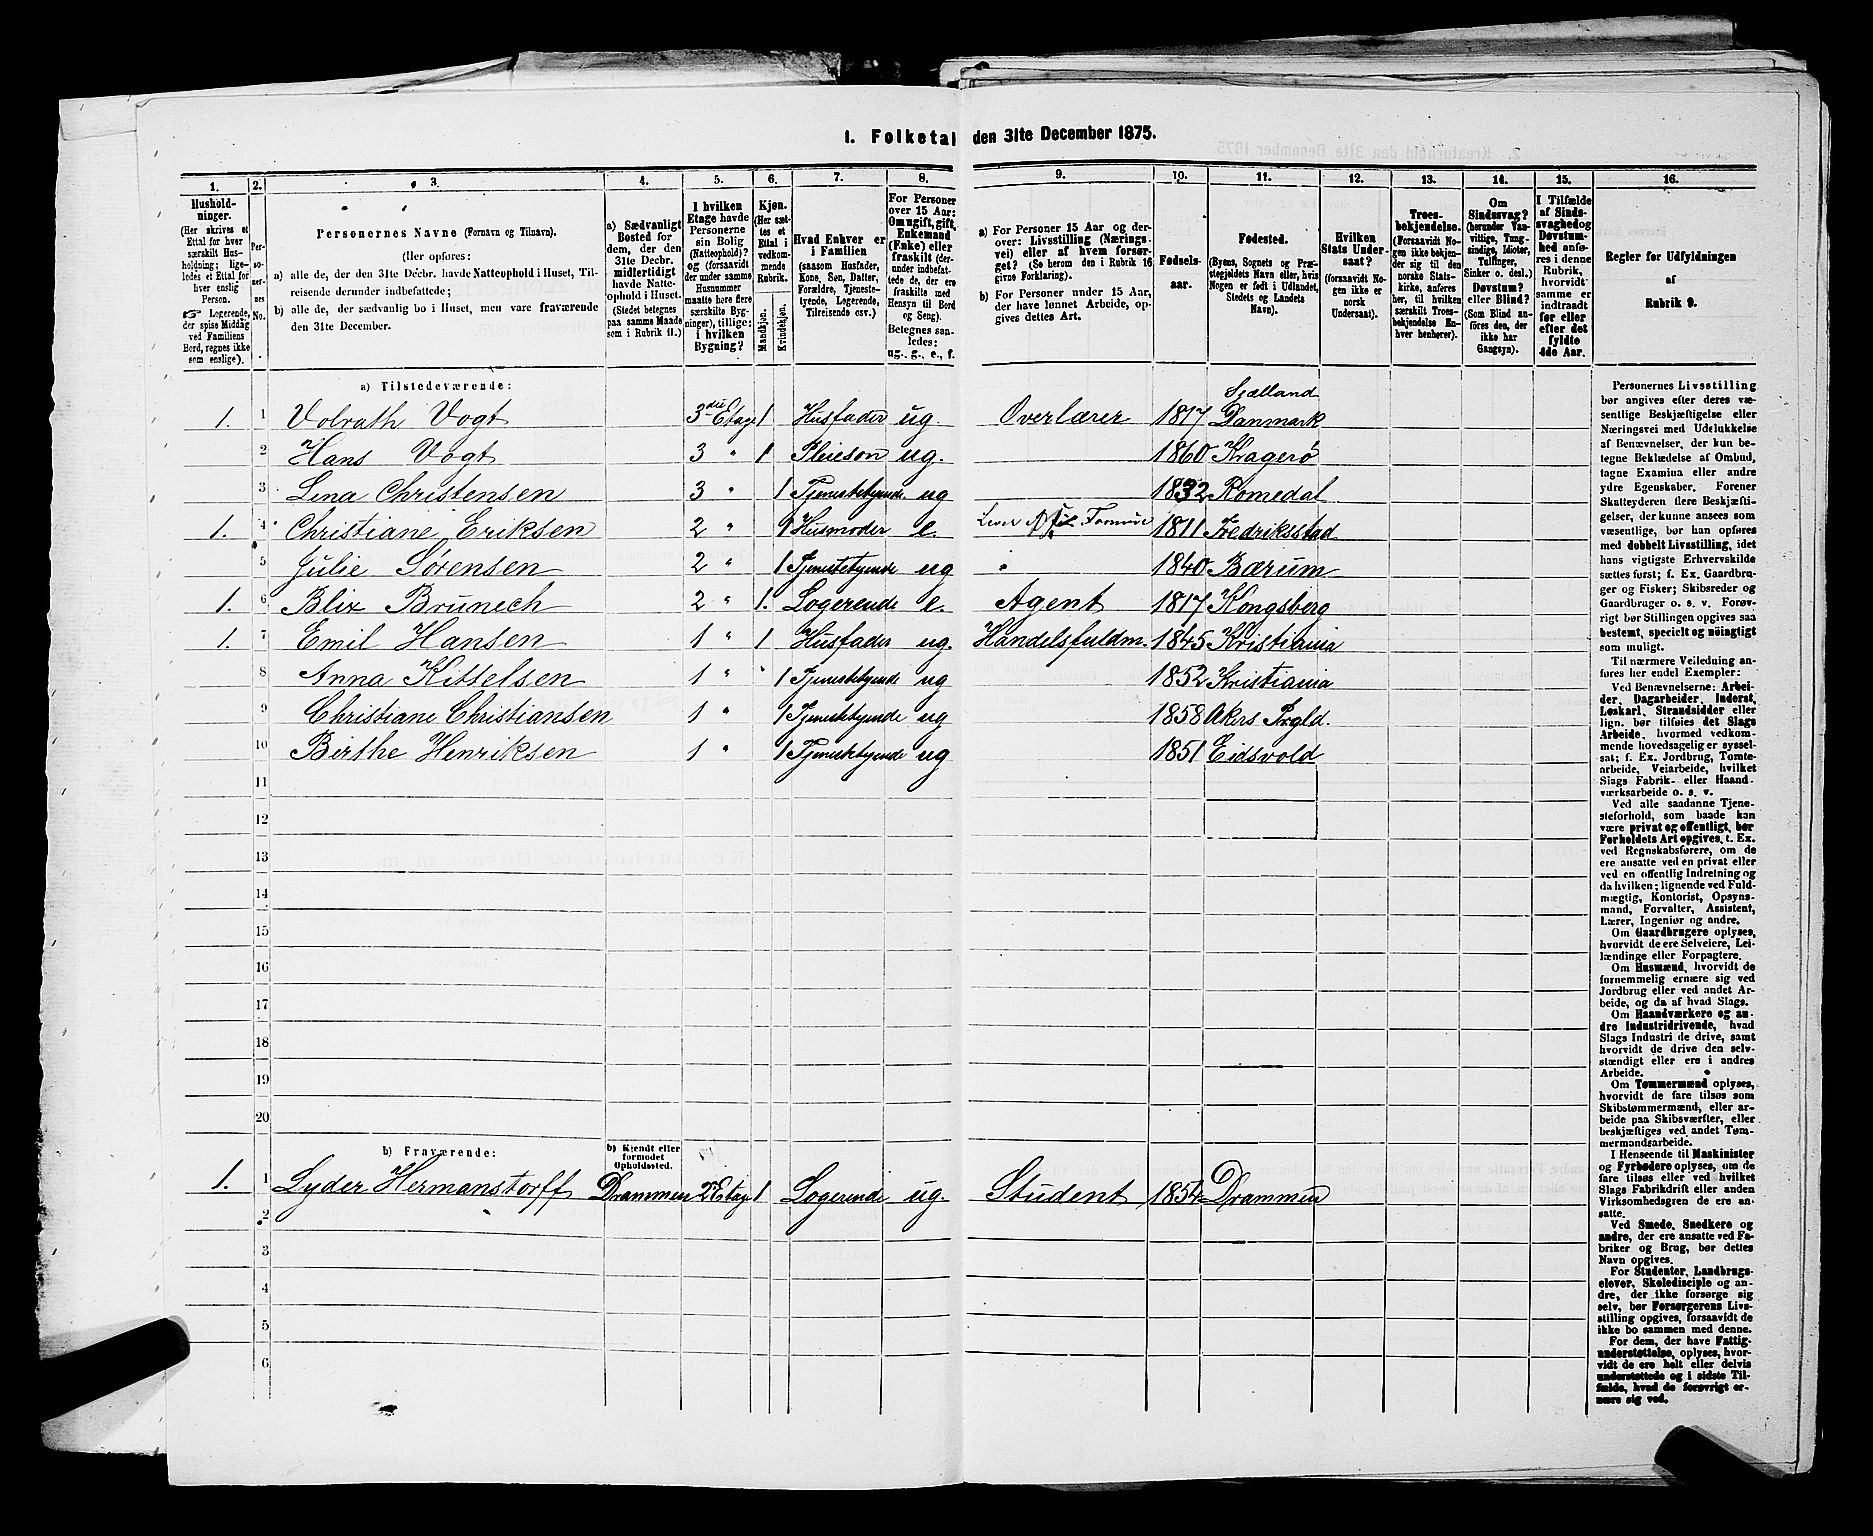 1. Folketal den 31te December 1875.
1. 2. 3. 4. 5. 6. 7. 8. 9. 10. 11. 12. 13. 14. 15. 16.
Hushold-
ninger.
(Her skrives et
Ettal for hver
særskilt Hus-
holdning; lige-
ledes et Ettal for
hver enslig
Person.
☞ Logerende,
der spise Middag
ved Familiens
Bord, regnes ikke
som enslige).
Per-
so-
ner-
nes
No.
Personernes Navne (Fornavn og Tilnavn).
(Her opføres:
a) alle de, der den 31te Decbr. havde Natteophold i Huset, Til-
reisende derunder indbefattede;
b) alle de, der sædvanlig bo i Huset, men vare fraværende
den 31te December.
a) Sædvanligt
Bosted for
dem, der den
31te Decbr.
midlertidigt
havde Natte-
ophold i Huset.
(Stedet betegnes
paa samme Maade
som i Rubrik 11.)
I hvilken
Etage havde
Personerne
sin Bolig
(Natteophold)?
og (forsaavidt
der under samme
Husnummer
maatte høre flere
særskilte Byg-
ninger), tillige:
i hvilken
Bygning?
Kjøn.
(Her sæt-
tes et
Ettal i
vedkom-
mende
Rubrik.
Mandkjøn.
Kvindekjøn.
Hvad Enhver er
i Familien
(saasom Husfader,
Kone, Søn, Datter,
Forældre, Tjeneste-
tyende, Logerende,
Tilreisende osv.)
For Personer
over 15 Aar:
Om ugift, gift,
Enkemand
(Enke) eller
fraskilt (der-
under indbefat-
tede de, der ere
fraskilte med
Hensyn til Bord
og Seng).
Betegnes saa-
ledes:
ug., g., e., f.
a) For Personer 15 Aar og der-
over: Livsstilling (Nærings-
vei) eller af hvem forsør-
get? (Se herom den i Rubrik 16
givne Forklaring).
b) For Personer under 15 Aar,
der have lønnet Arbeide, op-
gives dettes Art.
Fødsels-
aar.
Fødested.
(Byens, Sognets og Præ-
stegjeldets Navn eller, hvis
Nogen er født i Udlandet,
Stedets og Landets
Navn).
Hvilken
Stats Under-
saat?
(forsaavidt No-
gen ikke er
norsk
Undersaat).
Troes-
bekjendelse.
(Forsaavidt No-
gen ikke bekjen-
der sig til den
norske Stats-
kirke, anføres
her, til hvilken
særskilt Troes-
bekjendelse En-
hver henhører).
Om
Sindssvag?
(herunder Van-
vittige, Tung-
sindige, Idioter,
Tullinger,
Sinker o. desl.)
Døvstum?
eller Blind?
(Som Blind an-
føres den, der
ikke har
Gangsyn).
I Tilfælde
af Sinds-
svaghed og
Døvstum-
hed anfø-
res i denne
Rubrik,
hvorvidt
samme er
indtraadt
før eller
efter det
fyldte
4de Aar.
Regler for Udfyldningen
af
Rubrik 9.
a) Tilstedeværende:
Sjælland
1. 1 Volrath Vogt 3die Etage 1 Husfader ug. Overlærer 1817 Danmark
2 Hans Vogt 3 " 1 Pleieson ug. 1860 Kragerø
3 Lina Christensen 3 " 1 Tjenestetyende ug 1832 Romedal
1. 4 Christiane Eriksen 2 " 1 Husmoder e. Lever af Formue 1811 Fredriksstad
5 Julie Sørensen 2 " 1 Tjenestetyende ug " 1840 Bærum
1. 6 Blix Brunech 2 " 1. Logerende e. Agent 1817 Kongsberg
1. 7 Emil Hansen 1 " 1 Husfader ug. Handelsfuldm. 1845 Kristiania
8 Anna Kittelsen 1 " 1 Tjenestetyende ug 1852 Kristiania
9 Christiane Christiansen 1 " 1 Tjenestetyende ug 1858 Akers Prgld
10 Birthe Henriksen 1 " 1 Tjenestetyende ug 1851 Eidsvold
11
12
13
14
15
16
17
18
19
20
b) Fraværende:
b) Kjendt eller
formodet
Opholdssted.
1. 1 Lyder Hermanstorff Drammen 2 Etage 1. Logerende ug. Student 1854 Drammen
2
3
4
5
6
Personernes Livsstilling
bør angives efter deres væ-
sentlige Beskjæftigelse eller
Næringsvei med Udelukkelse
af Benævnelser, der kun be-
tegne Beklædelse af Ombud,
tagne Examina eller andre
ydre Egenskaber. Forener
Skatteyderen flere Beskjæfti-
gelser, der kunne ansees som
væsentlige, bør han opføres
med dobbelt Livsstilling, idet
hans vigtigste Erhvervskilde
sættes først; f. Ex. Gaardbru-
ger og Fisker; Skibsreder og
Gaardbruger o. s. v. Forøv-
rigt bør Stillingen opgives saa
bestemt, specielt og nöiagtigt
som muligt.
Til nærmere Veiledning an-
føres her endel Exempler:
Ved Benævnelserne: Arbei-
der, Dagarbeider, Inderst,
Løskarl, Strandsidder eller
lign. bør tilføies det Slags
Arbeide, hvormed vedkom-
mende hovedsagelig er syssel-
sat; f. Ex. Jordbrug, Tomte-
arbeide, Veiarbeide, hvilket
Slags Fabrik- eller Haand-
værksarbeide o. s. v.
Ved alle saadanne Tjene-
steforhold, som baade kan
være privat og offentligt, bør
Forholdets Art opgives, t. Ex.
ved Regnskabsførere, om de
ere ansatte ved en privat eller
ved en offentlig Indretning og
da hvilken; lignende ved Fuld-
mægtig, Kontorist, Opsyns-
mand, Forvalter, Assistent,
Lærer, Ingeniør og andre.
Om Gaardbrugere oplyses,
hvorvidt de ere Selveiere, Lei-
lændinge eller Forpagtere.
Om Husmænd, hvorvidt de
fornemmelig ernære sig ved
Jordbrug eller ved andet Ar-
beide, og da af hvad Slags.
Om Haandværkere og an-
dre Industridrivende, hvad
Slags Industri de drive, samt
hvorvidt de drive den selv-
stændigt eller ere i andres
Arbeide.
Om Tømmermænd oplyses,
hvorvidt de fare tilsøs som
Skibstømmermænd, eller ar-
beide paa Skibsværfter, eller
beskjæftiges ved andet Tøm-
mermandsarbeide.
I Henseende til Maskinister
og Fyrbødere oplyses, om de
fare tilsøs eller ved hvilket
Slags Fabrikdrift eller anden
Virksomhedsgren de ere an-
satte.
Ved Smede, Snedkere og
andre, der ere ansatte ved Fa-
briker og Brug, bør dettes
Navn opgives.
For Studenter, Landbrugs-
elever, Skoledisciple og an-
dre, der ikke forsørge sig
selv, bør Forsørgerens Livs-
stilling opgives, forsaavidt de
ikke bo sammen med denne.
For dem, der have Fattig-
understøttelse, oplyses, hvor-
vidt de ere helt eller delvis
understøttede og i sidste Til-
fælde, hvad de forøvrigt er-
nære sig ved.